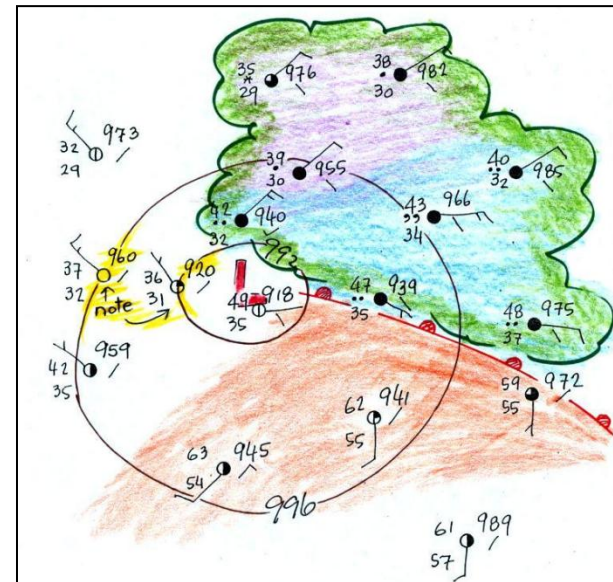 35 976
* 29
38 982
. 30
32 973
29
39 955
. 30
40 985
.. 32
43 966
,, 34
42 940
.. 32
992
37 960
32
note
36 920
31
L
49 918
35
47 939
.. 35
48 975
.. 37
42 959
35
59 972
55
62 941
55
63 945
54
996
61 989
57